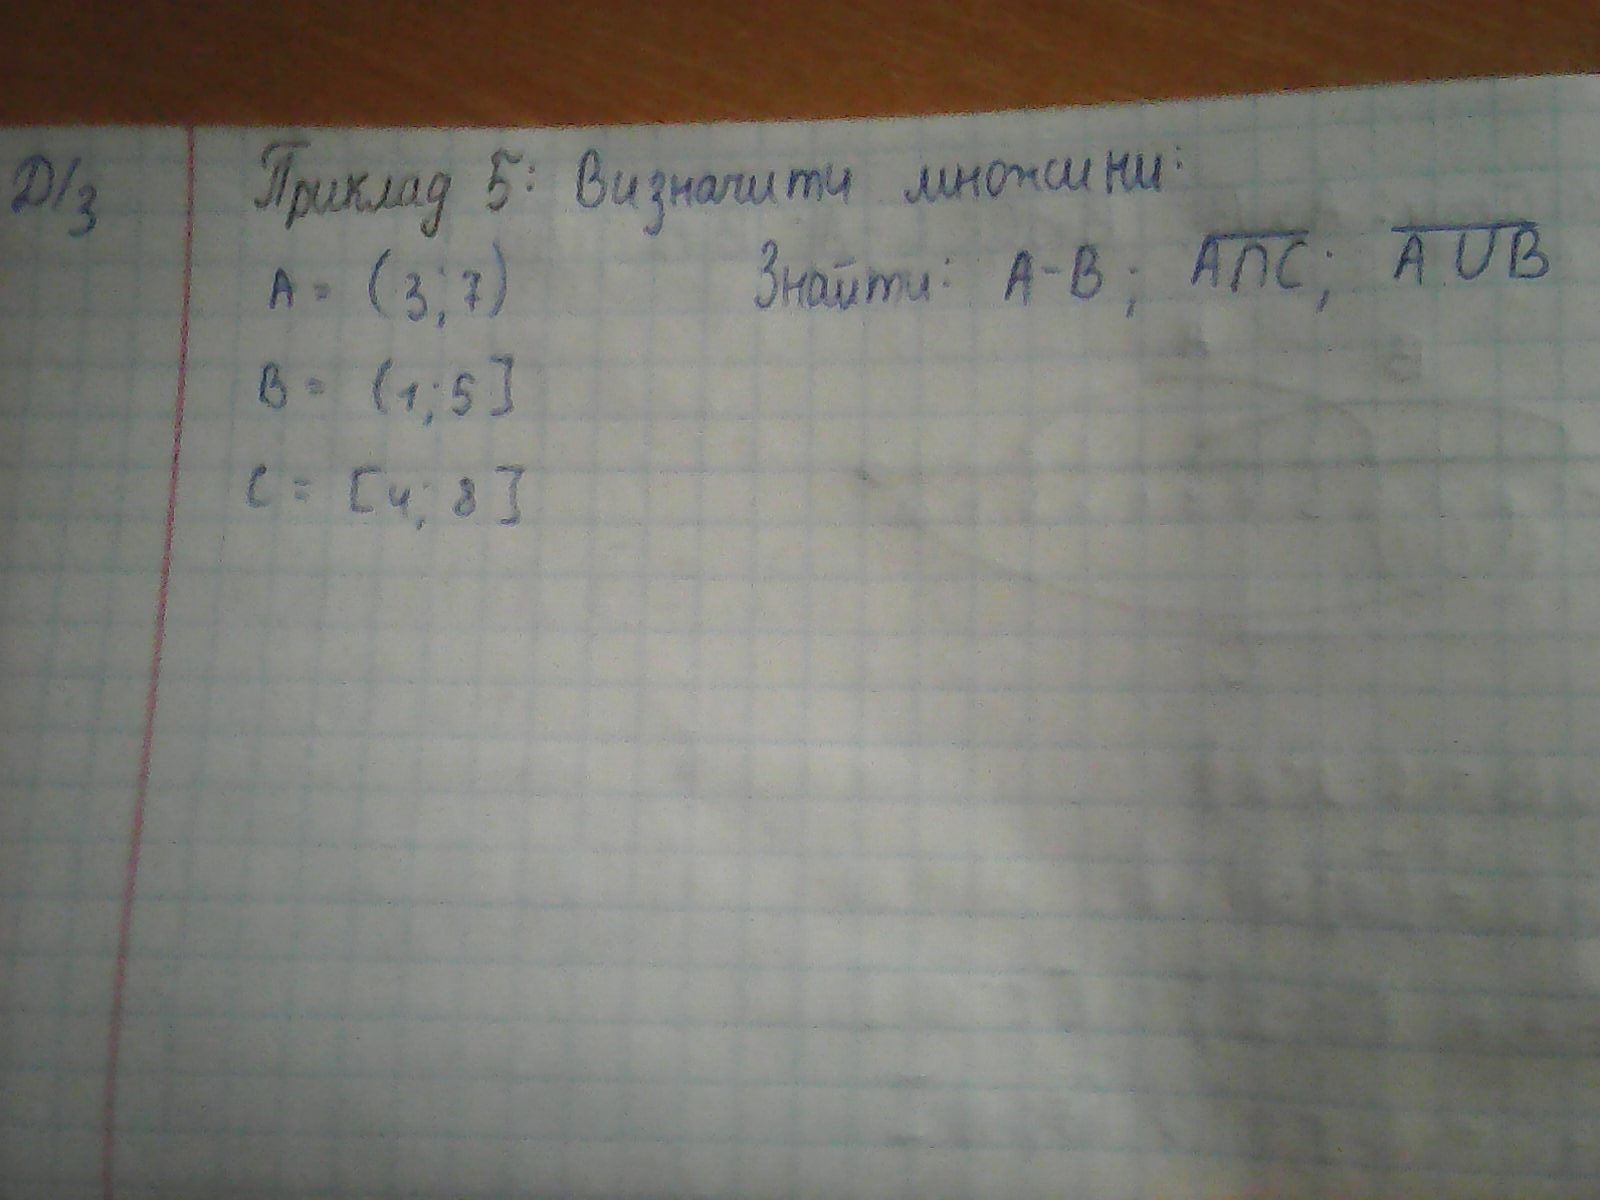 Д/з
Приклад 5: Визначити множини:
A = (3; 7)
Знайти: A-B; A̅∩̅C̅; A̅ ∪̅ B̅
B = (1; 5]
C = [4; 8]